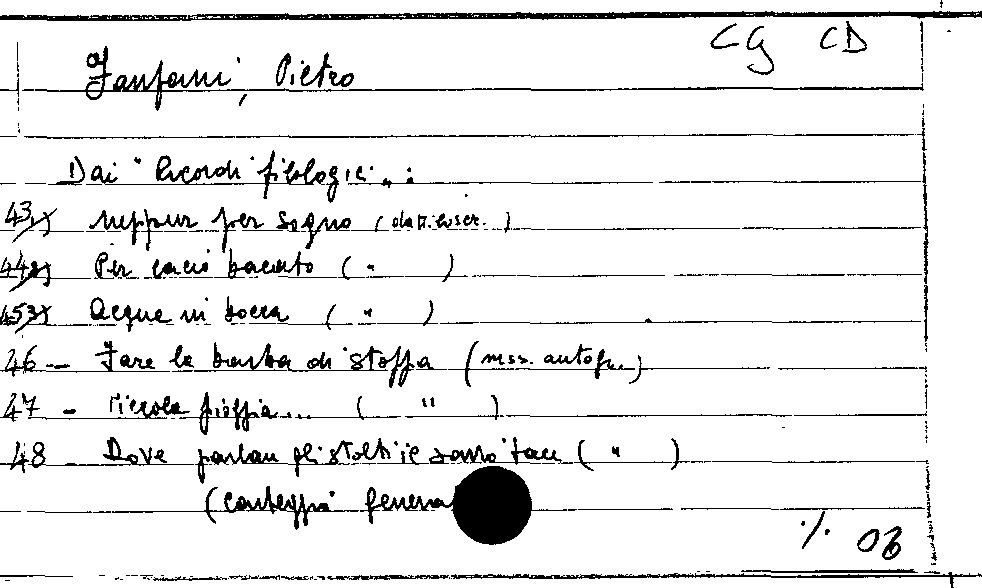 CG CD
Fanfani, Pietro
Dai "Ricordi filologici":
43) neppur per sogno (dattiloscr.)
44) Per cacio bacato ( " )
45) Acqua in bocca ( " )
46 - Fare la barba di stoppa (mss. autogr.)
47 - Piccola pioggia... ( " )
48 - Dove parlan gli stolti il savio tace ( " )
(conteggia
% 06